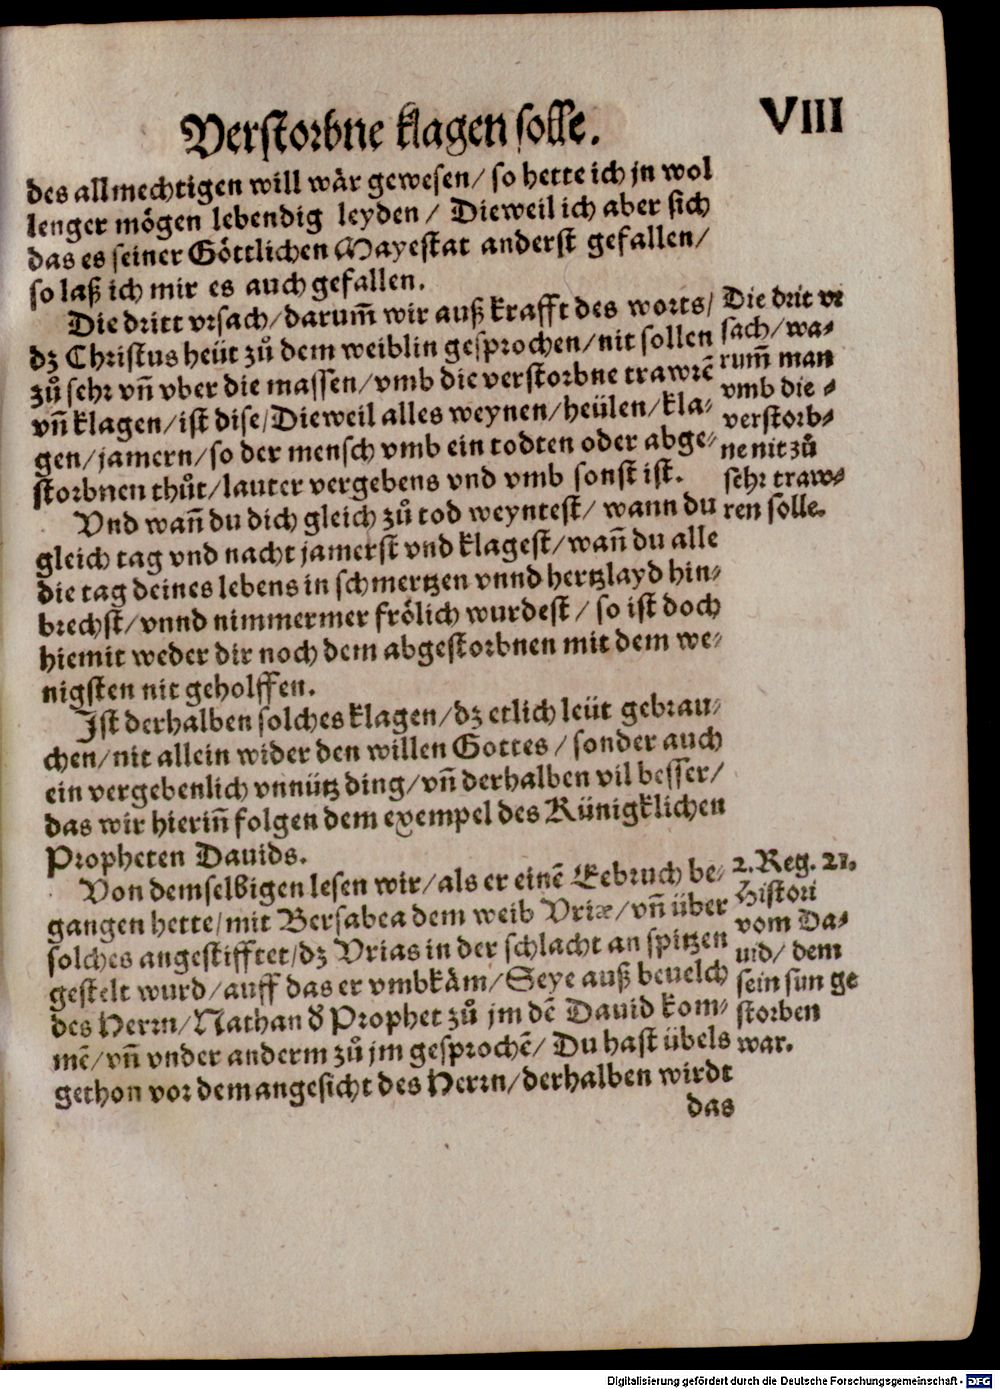 Verstorbne klagen solle. VIII
des allmechtigen will wår gewesen / so hette ich jn wol
lenger mögen lebendig leyden / Dieweil ich aber sich
das es seiner Göttlichen Mayestat anderst gefallen /
so laß ich mir es auch gefallen.
Die dritt vrsach / darum̃ wir auß krafft des worts /
dz Christus heüt zů dem weiblin gesprochen / nit sollen
zů sehr vñ vber die massen / vmb die verstorbne trawrẽ
vñ klagen / ist dise / Dieweil alles weynen / heülen / kla⸗
gen / jamern / so der mensch vmb ein todten oder abge⸗
storbnen thůt / lauter vergebens vnd vmb sonst ist.
Die drit vr
sach / wa⸗
rum̃ man
vmb die ⸗
verstorb⸗
ne nit zů
sehr traw⸗
ren solle.
Vnd wañ du dich gleich zů tod weyntest / wann du
gleich tag vnd nacht jamerst vnd klagest / wañ du alle
die tag deines lebens in schmertzen vnnd hertzlayd hin⸗
brechst / vnnd nimmermer frölich wurdest / so ist doch
hiemit weder dir noch dem abgestorbnen mit dem we⸗
nigsten nit geholffen.
Ist derhalben solches klagen / dz etlich leüt gebrau⸗
chen / nit allein wider den willen Gottes / sonder auch
ein vergebenlich vnnütz ding / vñ derhalben vil besser /
das wir hieriñ folgen dem exempel des Künigklichen
Propheten Dauids.
Von demselbigen lesen wir / als er einẽ Eebruch be⸗
gangen hette / mit Bersabea dem weib Vriæ / vñ über
solches angestifftet / dz Vrias in der schlacht an spitzen
gestelt wurd / auff das er vmbkåm / Seye auß beuelch
des Herrn / Nathan d̕ Prophet zů jm dẽ Dauid kom⸗
mẽ / vñ vnder anderm zů jm gesprochẽ / Du hast übels
gethon vor dem angesicht des Herrn / derhalben wirdt
2. Reg. 21.
Histori
vom Da⸗
uid / dem
sein sun ge
storben
war.
das
Digitalisierung gefördert durch die Deutsche Forschungsgemeinschaft - DFG